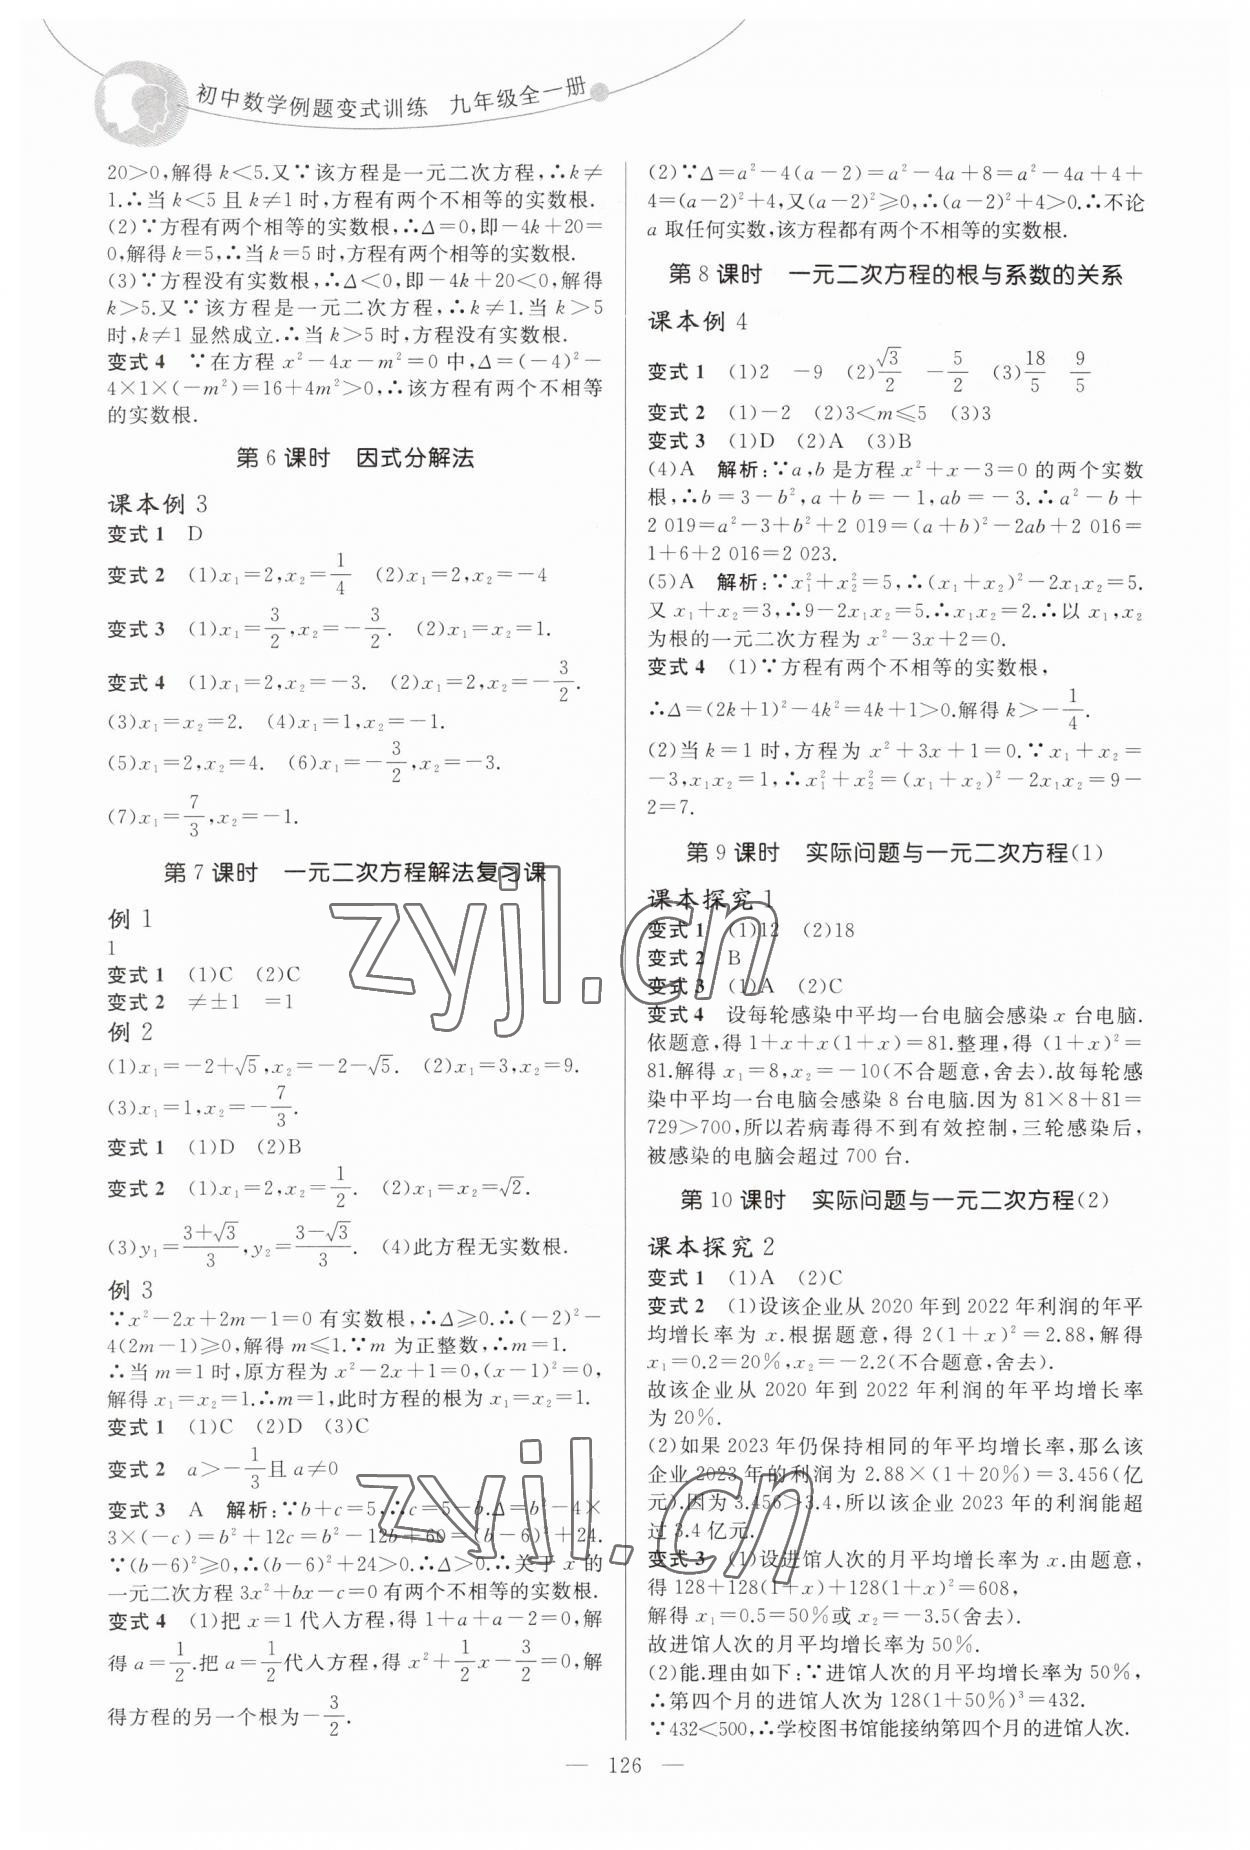 初中数学例题变式训练 九年级全一册
20>0,解得 k<5.又∵该方程是一元二次方程,∴k≠
1.∴当 k<5 且 k≠1 时,方程有两个不相等的实数根.
(2)∵方程有两个相等的实数根,∴Δ=0,即-4k+20=
0,解得 k=5,∴当 k=5 时,方程有两个相等的实数根.
(3)∵方程没有实数根,∴Δ<0,即-4k+20<0,解得
k>5.又∵该方程是一元二次方程,∴k≠1.当 k>5
时,k≠1 显然成立.∴当 k>5 时,方程没有实数根.
变式 4 ∵在方程 x²-4x-m²=0 中,Δ=(-4)²-
4×1×(-m²)=16+4m²>0,∴该方程有两个不相等
的实数根.
第 6 课时 因式分解法
课本例 3
变式 1 D
变式 2 (1)x₁=2,x₂=1/4 (2)x₁=2,x₂=-4
变式 3 (1)x₁=3/2,x₂=-3/2. (2)x₁=x₂=1.
变式 4 (1)x₁=2,x₂=-3. (2)x₁=2,x₂=-3/2.
(3)x₁=x₂=2. (4)x₁=1,x₂=-1.
(5)x₁=2,x₂=4. (6)x₁=-3/2,x₂=-3.
(7)x₁=7/3,x₂=-1.
第 7 课时 一元二次方程解法复习课
例 1
1
变式 1 (1)C (2)C
变式 2 ≠±1 =1
例 2
(1)x₁=-2+√5,x₂=-2-√5. (2)x₁=3,x₂=9.
(3)x₁=1,x₂=-7/3.
变式 1 (1)D (2)B
变式 2 (1)x₁=2,x₂=1/2. (2)x₁=x₂=√2.
(3)y₁=(3+√3)/3,y₂=(3-√3)/3. (4)此方程无实数根.
例 3
∵x²-2x+2m-1=0 有实数根,∴Δ≥0.∴(-2)²-
4(2m-1)≥0,解得 m≤1.∵m 为正整数,∴m=1.
∴当 m=1 时,原方程为 x²-2x+1=0,(x-1)²=0,
解得 x₁=x₂=1.∴m=1,此时方程的根为 x₁=x₂=1.
变式 1 (1)C (2)D (3)C
变式 2 a>-1/3且 a≠0
变式 3 A 解析:∵b+c=5,∴c=5-b.Δ=b²-4×
3×(-c)=b²+12c=b²-12b+60=(b-6)²+24.
∵(b-6)²≥0,∴(b-6)²+24>0,∴Δ>0.∴关于 x 的
一元二次方程 3x²+bx-c=0 有两个不相等的实数根.
变式 4 (1)把 x=1 代入方程,得 1+a+a-2=0,解
得 a=1/2.把 a=1/2代入方程,得 x²+1/2x-3/2=0,解
得方程的另一个根为-3/2.
(2)∵Δ=a²-4(a-2)=a²-4a+8=a²-4a+4+
4=(a-2)²+4,又(a-2)²≥0,∴(a-2)²+4>0.∴不论
a 取任何实数,该方程都有两个不相等的实数根.
第 8 课时 一元二次方程的根与系数的关系
课本例 4
变式 1 (1)2 -9 (2)√3/2 -5/2 (3)18/5 9/5
变式 2 (1)-2 (2)3<m≤5 (3)3
变式 3 (1)D (2)A (3)B
(4)A 解析:∵a,b 是方程 x²+x-3=0 的两个实数
根,∴b=3-b²,a+b=-1,ab=-3.∴a²-b+
2 019=a²-3+b²+2 019=(a+b)²-2ab+2 016=
1+6+2 016=2 023.
(5)A 解析:∵x₁²+x₂²=5,∴(x₁+x₂)²-2x₁x₂=5.
又 x₁+x₂=3,∴9-2x₁x₂=5.∴x₁x₂=2.∴以 x₁,x₂
为根的一元二次方程为 x²-3x+2=0.
变式 4 (1)∵方程有两个不相等的实数根,
∴Δ=(2k+1)²-4k²=4k+1>0.解得 k>-1/4.
(2)当 k=1 时,方程为 x²+3x+1=0.∵x₁+x₂=
-3,x₁x₂=1,∴x₁²+x₂²=(x₁+x₂)²-2x₁x₂=9-
2=7.
第 9 课时 实际问题与一元二次方程(1)
课本探究 1
变式 1 (1)12 (2)18
变式 2 B
变式 3 (1)A (2)C
变式 4 设每轮感染中平均一台电脑会感染 x 台电脑.
依题意,得 1+x+x(1+x)=81.整理,得 (1+x)²=
81.解得 x₁=8,x₂=-10(不合题意,舍去).故每轮感
染中平均一台电脑会感染 8 台电脑.因为 81×8+81=
729>700,所以若病毒得不到有效控制,三轮感染后,
被感染的电脑会超过 700 台.
第 10 课时 实际问题与一元二次方程(2)
课本探究 2
变式 1 (1)A (2)C
变式 2 (1)设该企业从 2020 年到 2022 年利润的年平
均增长率为 x.根据题意,得 2(1+x)²=2.88,解得
x₁=0.2=20%,x₂=-2.2(不合题意,舍去).
故该企业从 2020 年到 2022 年利润的年平均增长率
为 20%.
(2)如果 2023 年仍保持相同的年平均增长率,那么该
企业 2023 年的利润为 2.88×(1+20%)=3.456(亿
元).因为 3.456>3.4,所以该企业 2023 年的利润能超
过 3.4 亿元.
变式 3 (1)设进馆人次的月平均增长率为 x.由题意,
得 128+128(1+x)+128(1+x)²=608,
解得 x₁=0.5=50%或 x₂=-3.5(舍去).
故进馆人次的月平均增长率为 50%.
(2)能.理由如下:∵进馆人次的月平均增长率为 50%,
∴第四个月的进馆人次为 128(1+50%)³=432.
∵432<500,∴学校图书馆能接纳第四个月的进馆人次.
— 126 —
zyjl.cn
zyjl.cn